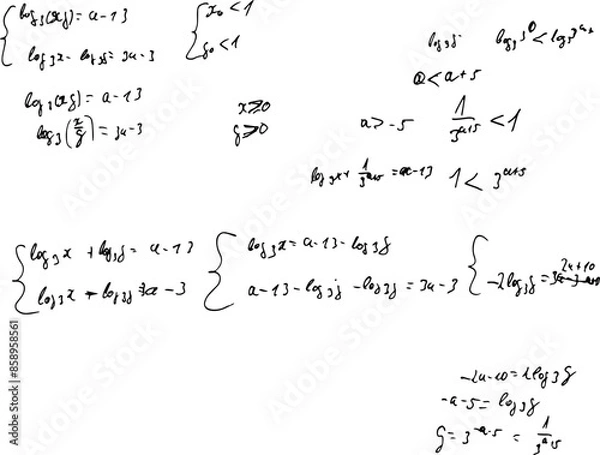 log₃(xy) = a-13
log₃x - log₃y = 3a-3
x₀ < 1
y₀ < 1
log₃y
log₃3⁰ < log₃3
0 < a+5
log₃(xy) = a-13
log₃(x/y) = 3a-3
x>0
y>0
a > -5
1/3^(a+5) < 1
1 < 3^(a+5)
log₃x + log₃y = a-13
log₃x - log₃y = 3a-3
log₃x = a-13-log₃y
a-13-log₃y-log₃y = 3a-3
2a+10
-2log₃y =
-2a-10 = 2log₃y
-a-5 = log₃y
y = 3^(-a-5) = 1/3^(a+5)
Adobe Stock | #858958561
Adobe Stock